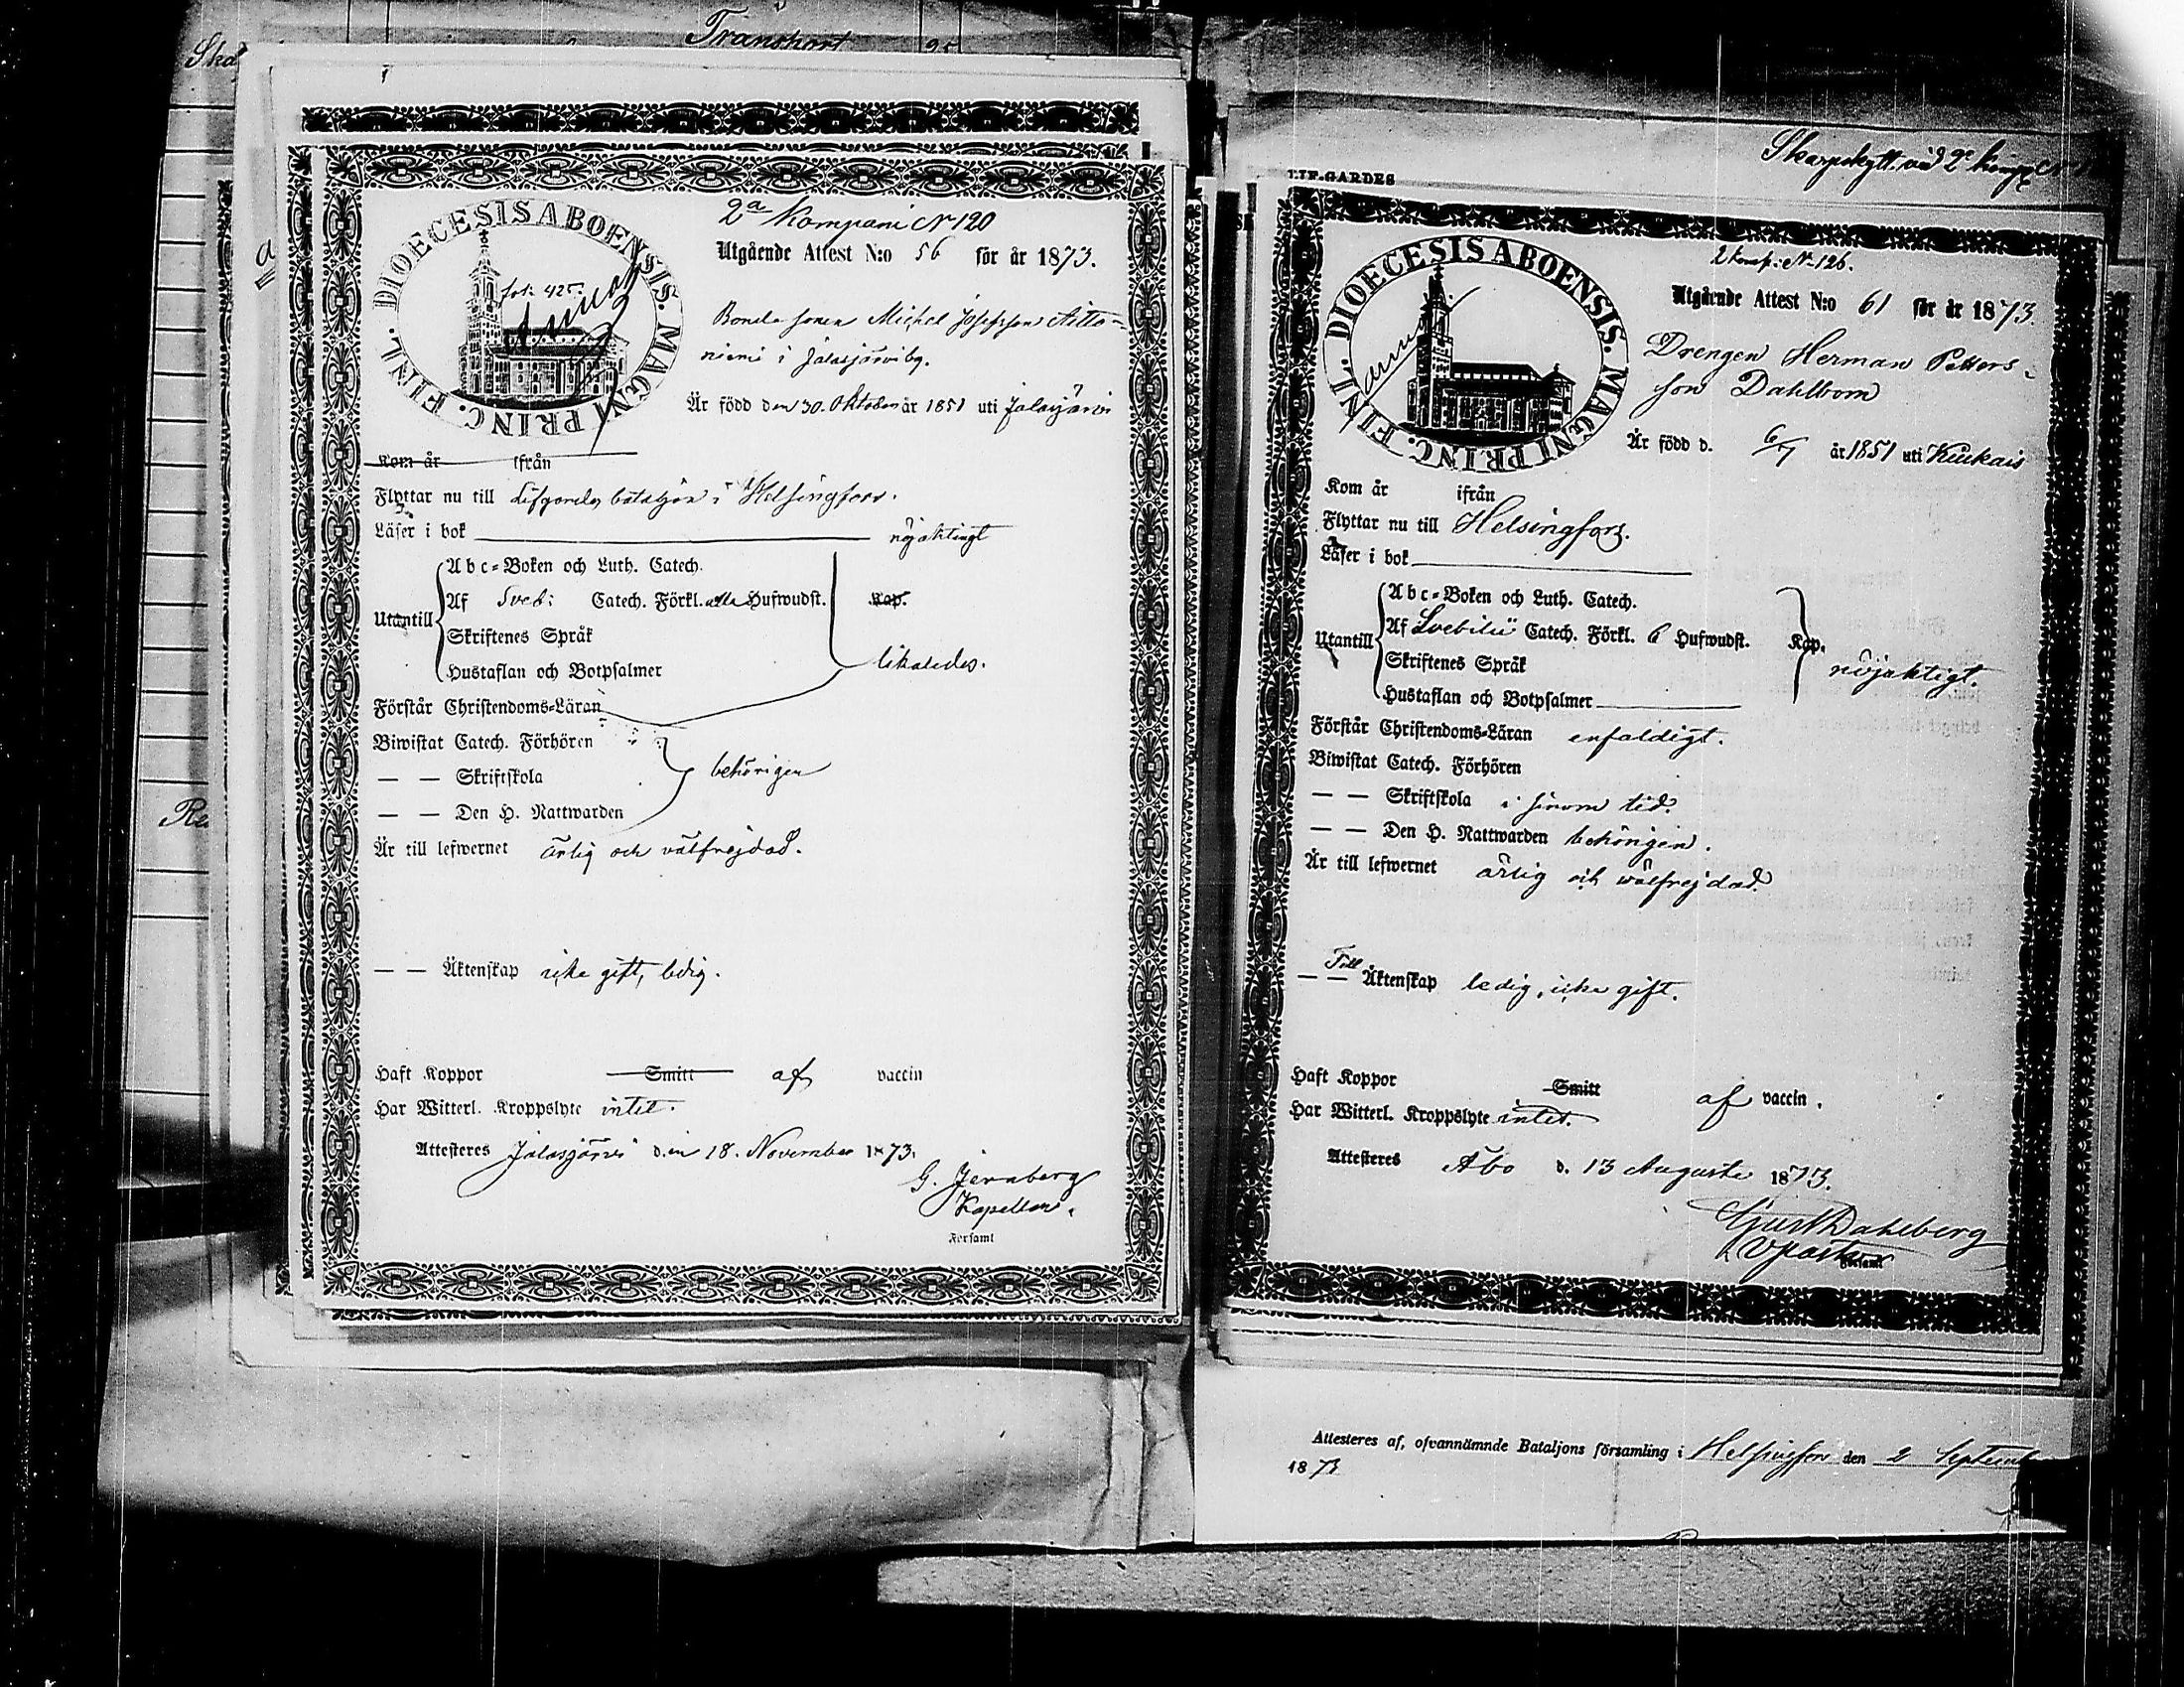 Transport 25
Ska
a
Re
2a Kompani No 120
DIOECESIS ABOENSIS. MAGNI PRINC. FINL.
fol: 425.
Utgående Attest N:o 56 för år 1873.
Bonde sonen Michel Josefsson Aitto-
niemi i Jalasjärvi by.
Är född den 30. Oktober år 1851 uti Jalasjärvi
Kom år ifrån
Flyttar nu till Lifgardes bataljon i Helsingfors.
Läser i bok nöjaktigt
Utantill
Abc-Boken och Luth. Catech.
Af Sveb: Catech. Förkl. alla Hufwudst. Kap.
Skriftenes Språk
Hustaflan och Botpsalmer likaledes.
Förstår Christendoms-Läran
Biwistat Catech. Förhören
— — Skriftskola behörigen
— — Den H. Nattwarden
Är till lefwernet ärlig och välfrejdad.
— — Äktenskap icke gift, ledig.
Haft Koppor Smitt af vaccin
Har Witterl. Kroppslyte intet.
Attesteres Jalasjärvi den 18. November 1873.
G. Jernberg
Kapellan.
Forsaml
LIF-GARDES
Skarpskytt vid 2e Komp
2 Komp: No 126.
DIOECESIS ABOENSIS. MAGNI PRINC. FINL.
Utgående Attest N:o 61 för år 1873.
Drengen Herman Petters-
son Dahlbom
Är född d. 6/7 år 1851 uti Kiukais
Kom år ifrån
Flyttar nu till Helsingfors.
Läser i bok
Utantill
Abc-Boken och Luth. Catech.
Af Svebilii Catech. Förkl. 6 Hufwudst. Kap.
Skriftenes Språk nöjaktigt.
Hustaflan och Botpsalmer
Förstår Christendoms-Läran enfaldigt.
Biwistat Catech. Förhören
— — Skriftskola i sinom tid.
— — Den H. Nattwarden behörigen.
Är till lefwernet ärlig och wälfrejdad.
— — Till Äktenskap ledig, icke gift.
Haft Koppor Smitt af vaccin.
Har Witterl. Kroppslyte intet.
Attesteres Åbo d. 13 Augusti 1873.
Gust Dahlberg
V pastor
Forsaml
Attesteres af, ofvannämnde Bataljons församling i Helsingfors den 2 Septemb
1873